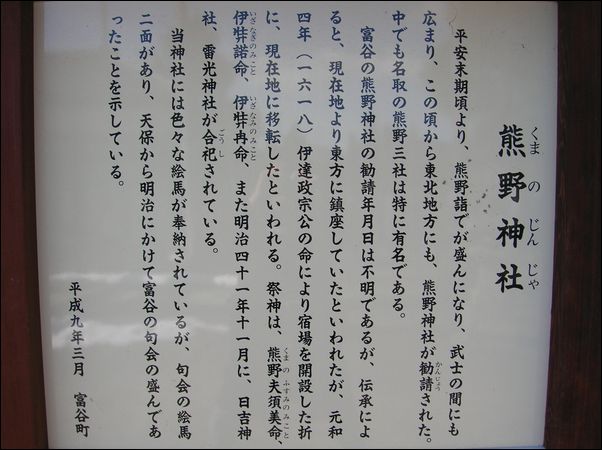 熊野神社
くまのじんじゃ
平安末期頃より、熊野詣でが盛んになり、武士の間にも
広まり、この頃から東北地方にも、熊野神社が勧請された。
かんじょう
中でも名取の熊野三社は特に有名である。
富谷の熊野神社の勧請年月日は不明であるが、伝承によ
ると、現在地より東方に鎮座していたといわれたが、元和
四年（一六一八）伊達政宗公の命により宿場を開設した折
に、現在地に移転したといわれる。祭神は、熊野夫須美命、
くまのふすみのみこと
伊弉諾命、伊弉冉命、また明治四十一年十一月に、日吉神
いざなぎのみこと
いざなみのみこと
社、雷光神社が合祀されている。
ごうし
当神社には色々な絵馬が奉納されているが、句会の絵馬
二面があり、天保から明治にかけて富谷の句会の盛んであ
ったことを示している。
平成九年三月　富谷町